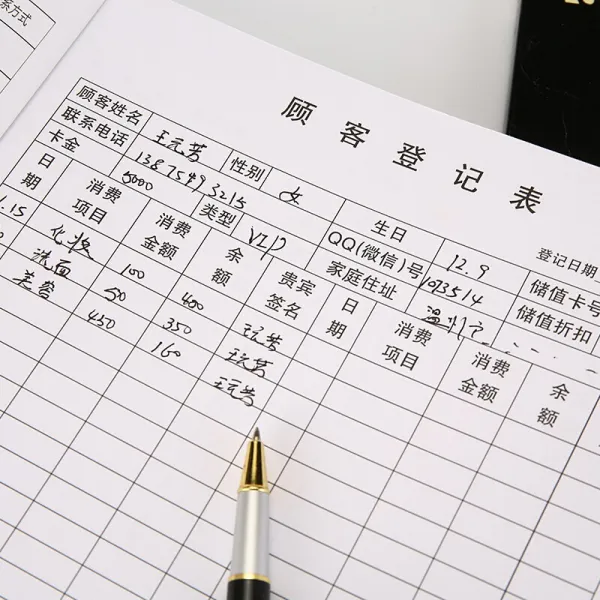 系方式
顾客登记表
登记日期
顾客姓名 王元芳 性别 女 生日 12.9 储值卡号
联系电话 13875493215 QQ(微信)号 1093514 储值折扣
卡金 5000 类型 VIP 家庭住址
日期 消费项目 消费金额 余额 贵宾签名 日期 消费项目 消费金额 余额
1.15 化妆 100 400 王元芳
洗面 50 350 王元芳
美容 450 160 王元芳